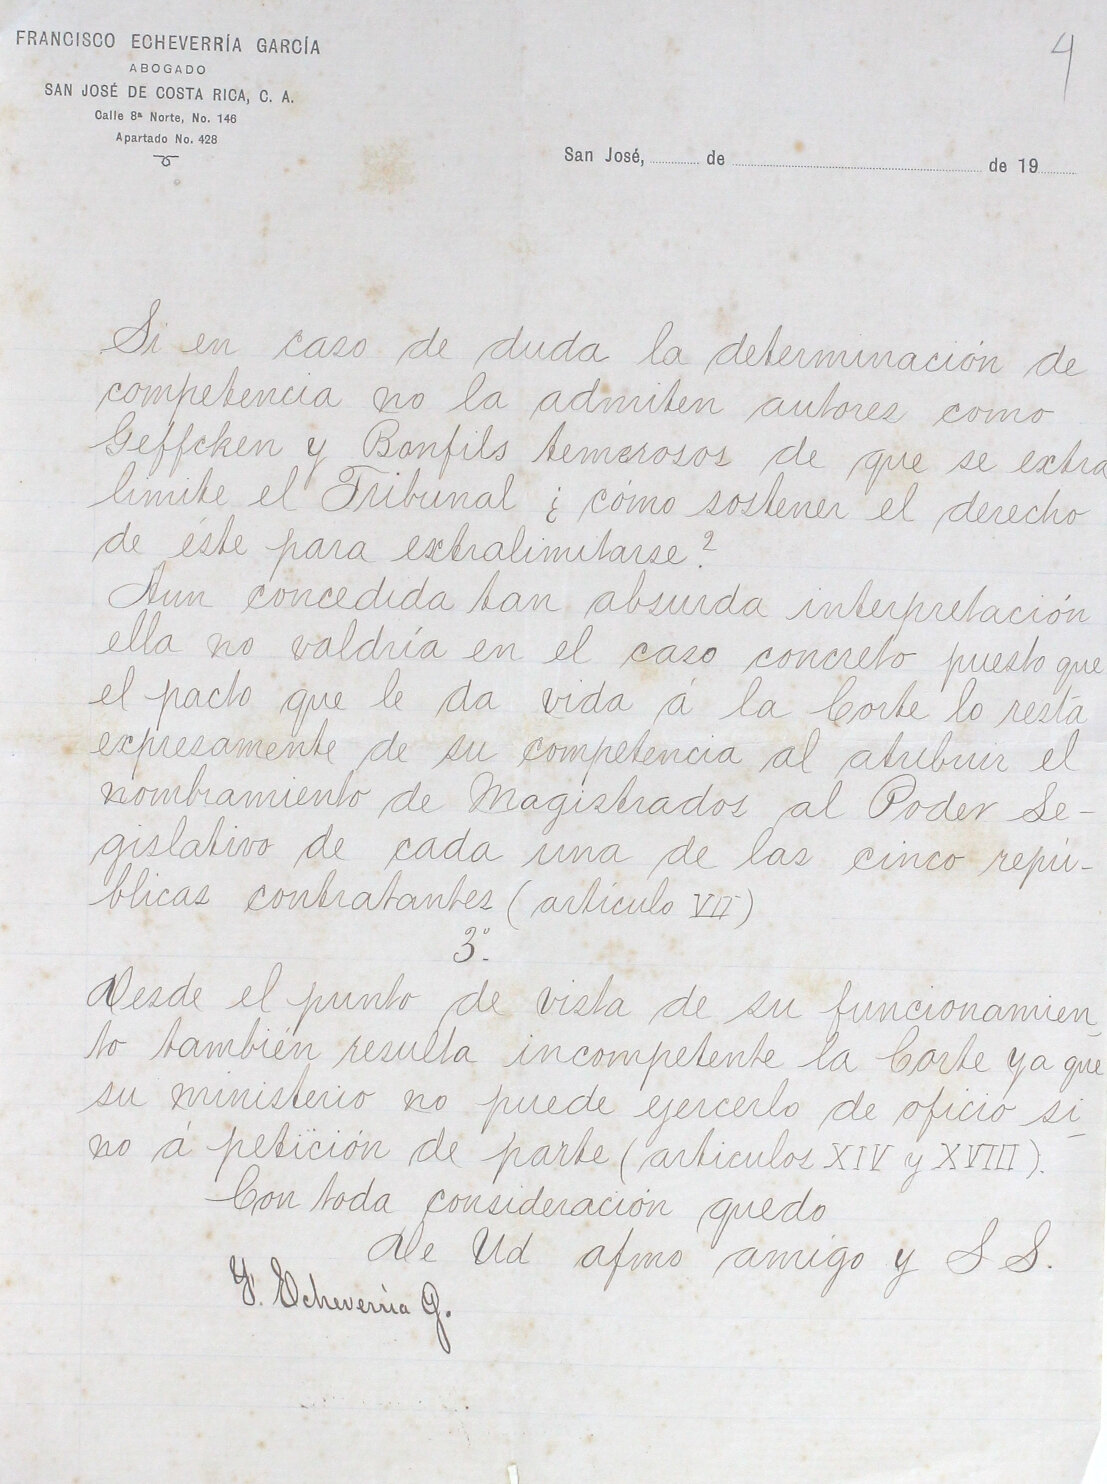 FRANCISCO ECHEVERRÍA GARCÍA
ABOGADO
SAN JOSÉ DE COSTA RICA, C. A.
Calle 8ª Norte, No. 146
Apartado No. 428
4
San José, ............ de ............................................ de 19.........
Si en caso de duda la determinación de
competencia no la admiten autores como
Geffcken y Bonfils temerosos de que se extra
limite el Tribunal ¿ cómo sostener el derecho
de éste para extralimitarse?
Aun concedida tan absurda interpretación
ella no valdría en el caso concreto puesto que
el pacto que le da vida á la Corte lo resta
expresamente de su competencia al atribuir el
nombramiento de Magistrados al Poder Le-
gislativo de cada una de las cinco repú-
blicas contratantes (artículo VII)
3º.
Desde el punto de vista de su funcionamien_
to también resulta incompetente la Corte ya que
su ministerio no puede ejercerlo de oficio si_
no á petición de parte (articulos XIV y XVIII).
Con toda consideración quedo
De Ud afmo amigo y S S.
F. Echeverría G.